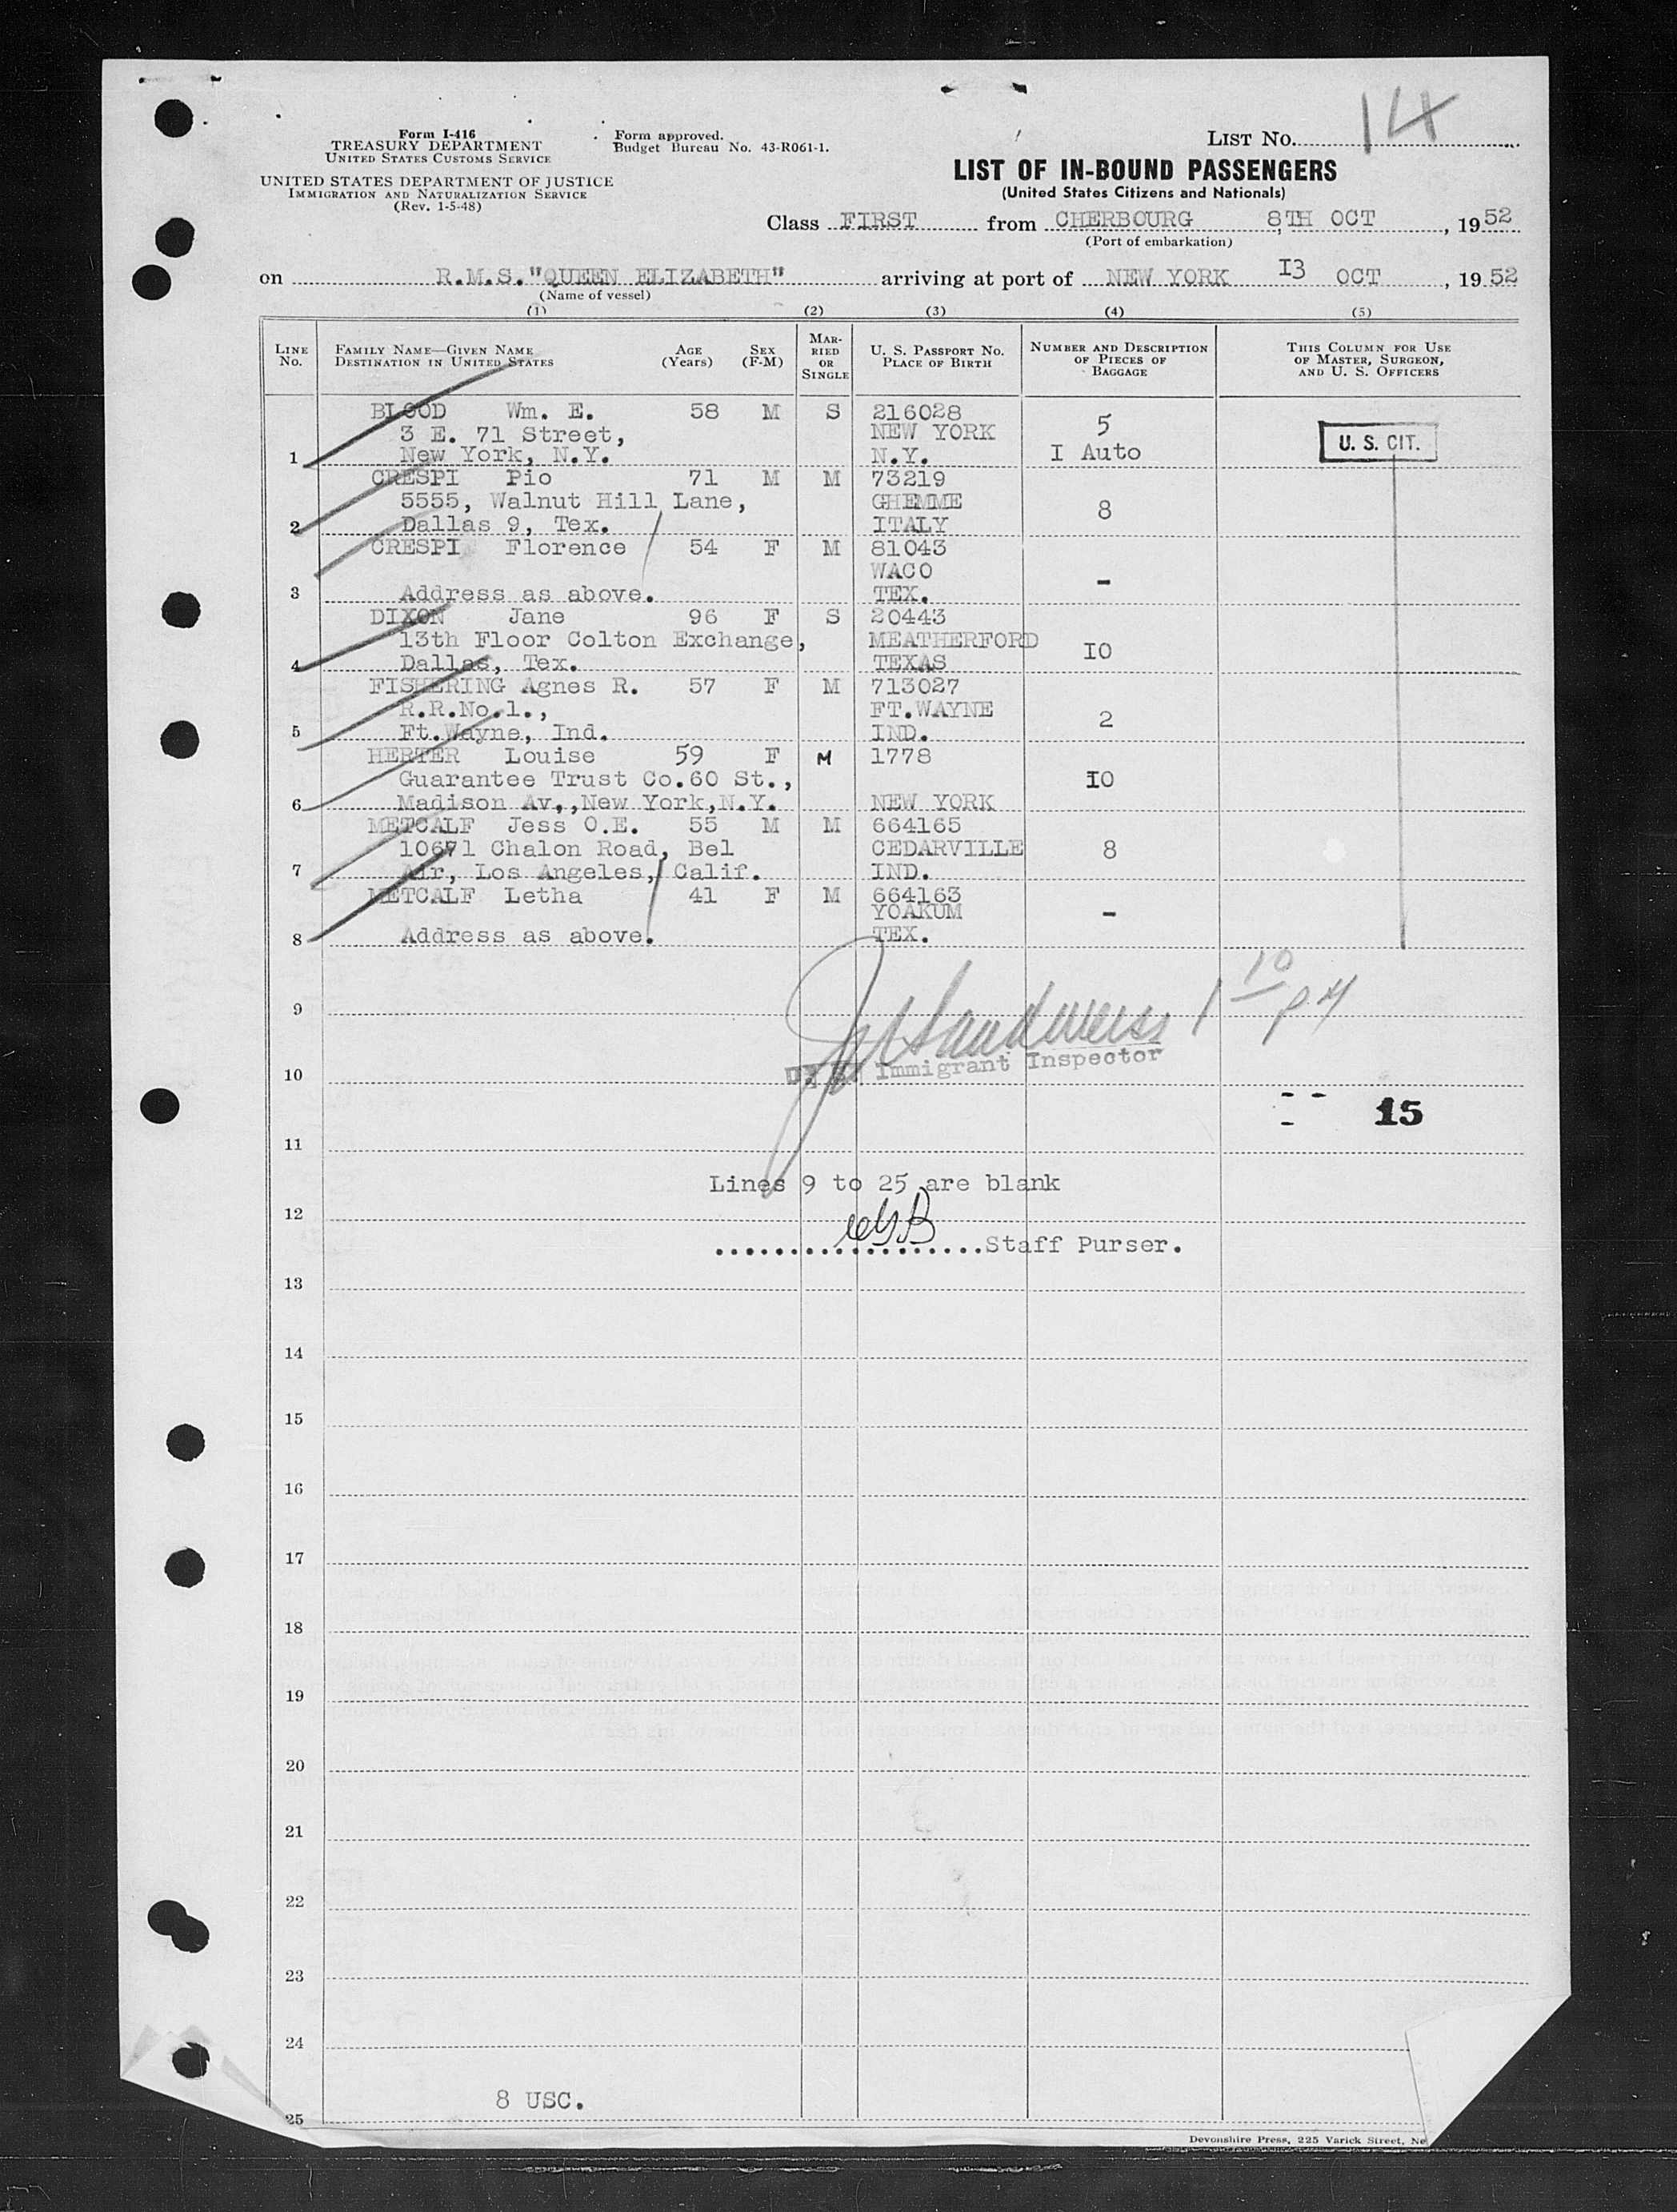 Form I-416
TREASURY DEPARTMENT
UNITED STATES CUSTOMS SERVICE
UNITED STATES DEPARTMENT OF JUSTICE
IMMIGRATION AND NATURALIZATION SERVICE
(Rev. 1-5-48)
Form approved.
Budget Bureau No. 43-R061-1.
LIST NO. 14
LIST OF IN-BOUND PASSENGERS
(United States Citizens and Nationals)
Class FIRST from CHERBOURG 8TH OCT, 1952
(Port of embarkation)
on R.M.S."QUEEN ELIZABETH" arriving at port of NEW YORK I3 OCT, 1952
(Name of vessel)
(1) (2) (3) (4) (5)
LINE NO. FAMILY NAME—GIVEN NAME DESTINATION IN UNITED STATES AGE (Years) SEX (F-M) MARRIED OR SINGLE U. S. PASSPORT NO. PLACE OF BIRTH NUMBER AND DESCRIPTION OF PIECES OF BAGGAGE THIS COLUMN FOR USE OF MASTER, SURGEON, AND U. S. OFFICERS
BLOOD Wm. E. 58 M S 216028
3 E. 71 Street, NEW YORK 5 U. S. CIT.
1 New York, N.Y. N.Y. I Auto
CRESPI Pio 71 M M 73219
5555, Walnut Hill Lane, GHEMME 8
2 Dallas 9, Tex. ITALY
CRESPI Florence 54 F M 81043
WACO -
3 Address as above. TEX.
DIXON Jane 96 F S 20443
13th Floor Colton Exchange, MEATHERFORD I0
4 Dallas, Tex. TEXAS
FISHERING Agnes R. 57 F M 713027
R.R.No.1., FT.WAYNE 2
5 Ft.Wayne, Ind. IND.
HERTER Louise 59 F M 1778
Guarantee Trust Co.60 St., I0
6 Madison Av.,New York,N.Y. NEW YORK
METCALF Jess O.E. 55 M M 664165
10671 Chalon Road, Bel CEDARVILLE 8
7 Air, Los Angeles, Calif. IND.
METCALF Letha 41 F M 664163
YOAKUM -
8 Address as above. TEX.
9 1 10 PM
10 U. S. Immigrant Inspector
15
11
Lines 9 to 25 are blank
12
....................Staff Purser.
13
14
15
16
17
18
19
20
21
22
23
24
8 USC.
25
Devonshire Press, 225 Varick Street, Ne